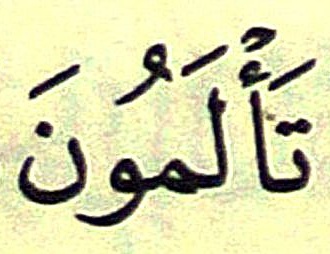 تَأْلَمُونَ